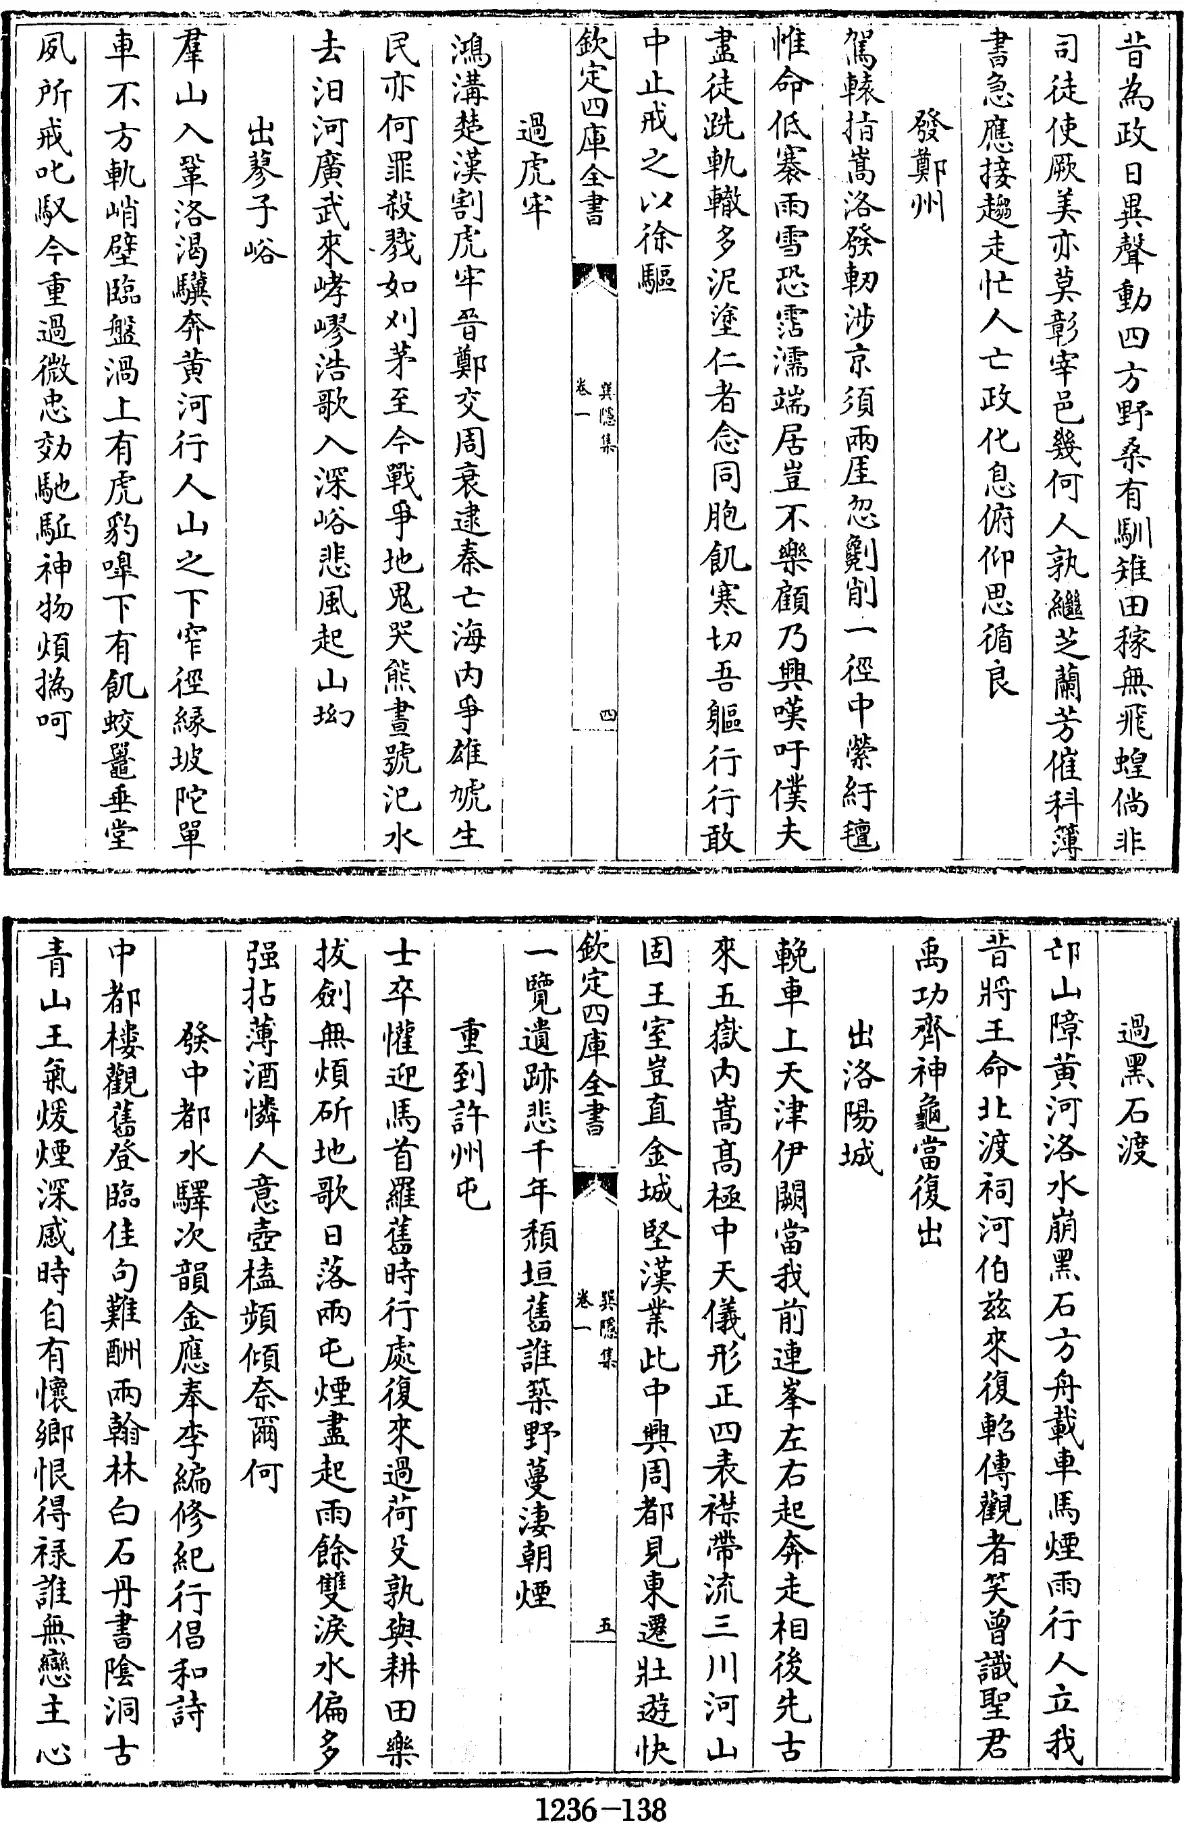 昔為政日異聲動四方野桑有馴雉田稼無飛蝗倘非
司徒使厥美亦莫彰宰邑幾何人孰繼芝蘭芳催科簿
書急應接趨走忙人亡政化息俯仰思循良
發鄭州
駕轅指嵩洛發軔涉京須兩厓忽劖削一徑中縈紆氊
帷命低褰雨雪恐霑濡端居豈不樂顧乃興嘆吁僕夫
盡徒跣軌轍多泥塗仁者念同胞飢寒切吾軀行行敢
中止戒之以徐驅
欽定四庫全書
巽隱集
卷一
四
過虎牢
鴻溝楚漢割虎牢晉鄭交周衰逮秦亡海内爭雄虓生
民亦何罪殺戮如刈茅至今戰爭地鬼哭熊晝號汜水
去汨河廣武來哮嘐浩歌入深峪悲風起山坳
出蓼子峪
羣山入鞏洛渴驥奔黄河行人山之下窄徑緣坡陀單
車不方軌峭壁臨盤渦上有虎豹嘷下有飢蛟鼉垂堂
夙所戒叱馭今重過微忠効馳駈神物煩撝呵
過黑石渡
邙山障黄河洛水崩黑石方舟載車馬煙雨行人立我
昔將王命北渡祠河伯兹來復軺傳觀者笑曾識聖君
禹功齊神龜當復出
出洛陽城
輓車上天津伊闕當我前連峯左右起奔走相後先古
來五嶽内嵩髙極中天儀形正四表襟帶流三川河山
固王室豈直金城堅漢業此中興周都見東遷壯遊快
欽定四庫全書
巽隱集
卷一
五
一覽遺跡悲千年頽垣舊誰築野蔓淒朝煙
重到許州屯
士卒懽迎馬首羅舊時行處復來過荷殳孰與耕田樂
拔劍無煩斫地歌日落兩屯煙盡起雨餘雙淚水偏多
强拈薄酒憐人意壺榼頻傾奈爾何
發中都水驛次韻金應奉李編修紀行倡和詩
中都樓觀舊登臨佳句難酬兩翰林白石丹書陰洞古
青山王氣煖煙深感時自有懷鄉恨得禄誰無戀主心
1236-138